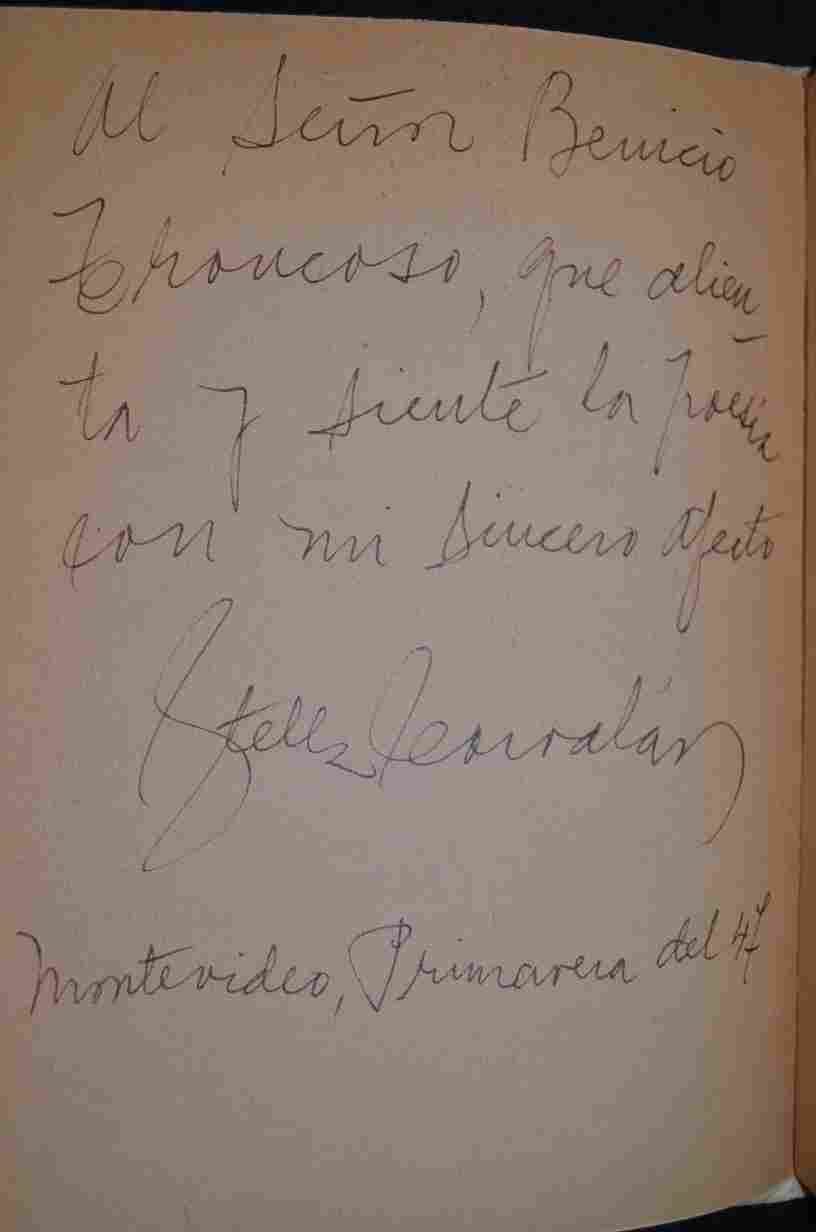 Al Señor Benicio
Troncoso, que alien-
ta y siente la poesía
con mi sincero afecto
Stella Corvalán
Montevideo, Primavera del 47